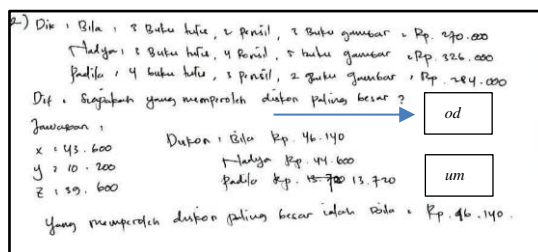 2) Dik : Bila : 3 Buku tulis, 2 pensil, 3 Buku gambar : Rp. 270.000
Nadya : 3 Buku tulis, 4 Pensil, 5 buku gambar : Rp. 326.000
Fadila : 4 buku tulis, 3 pensil, 2 buku gambar : Rp. 284.000
Dit : Siapakah yang memperoleh diskon paling besar ?
od
Jawaban :
x : 43.600
y : 10.200
z : 39.600
Diskon : Bila Rp. 46.140
Nadya Rp. 44.600
Fadila Rp. 13.720 13.720
um
Yang memperoleh diskon paling besar ialah Bila : Rp. 46.140.